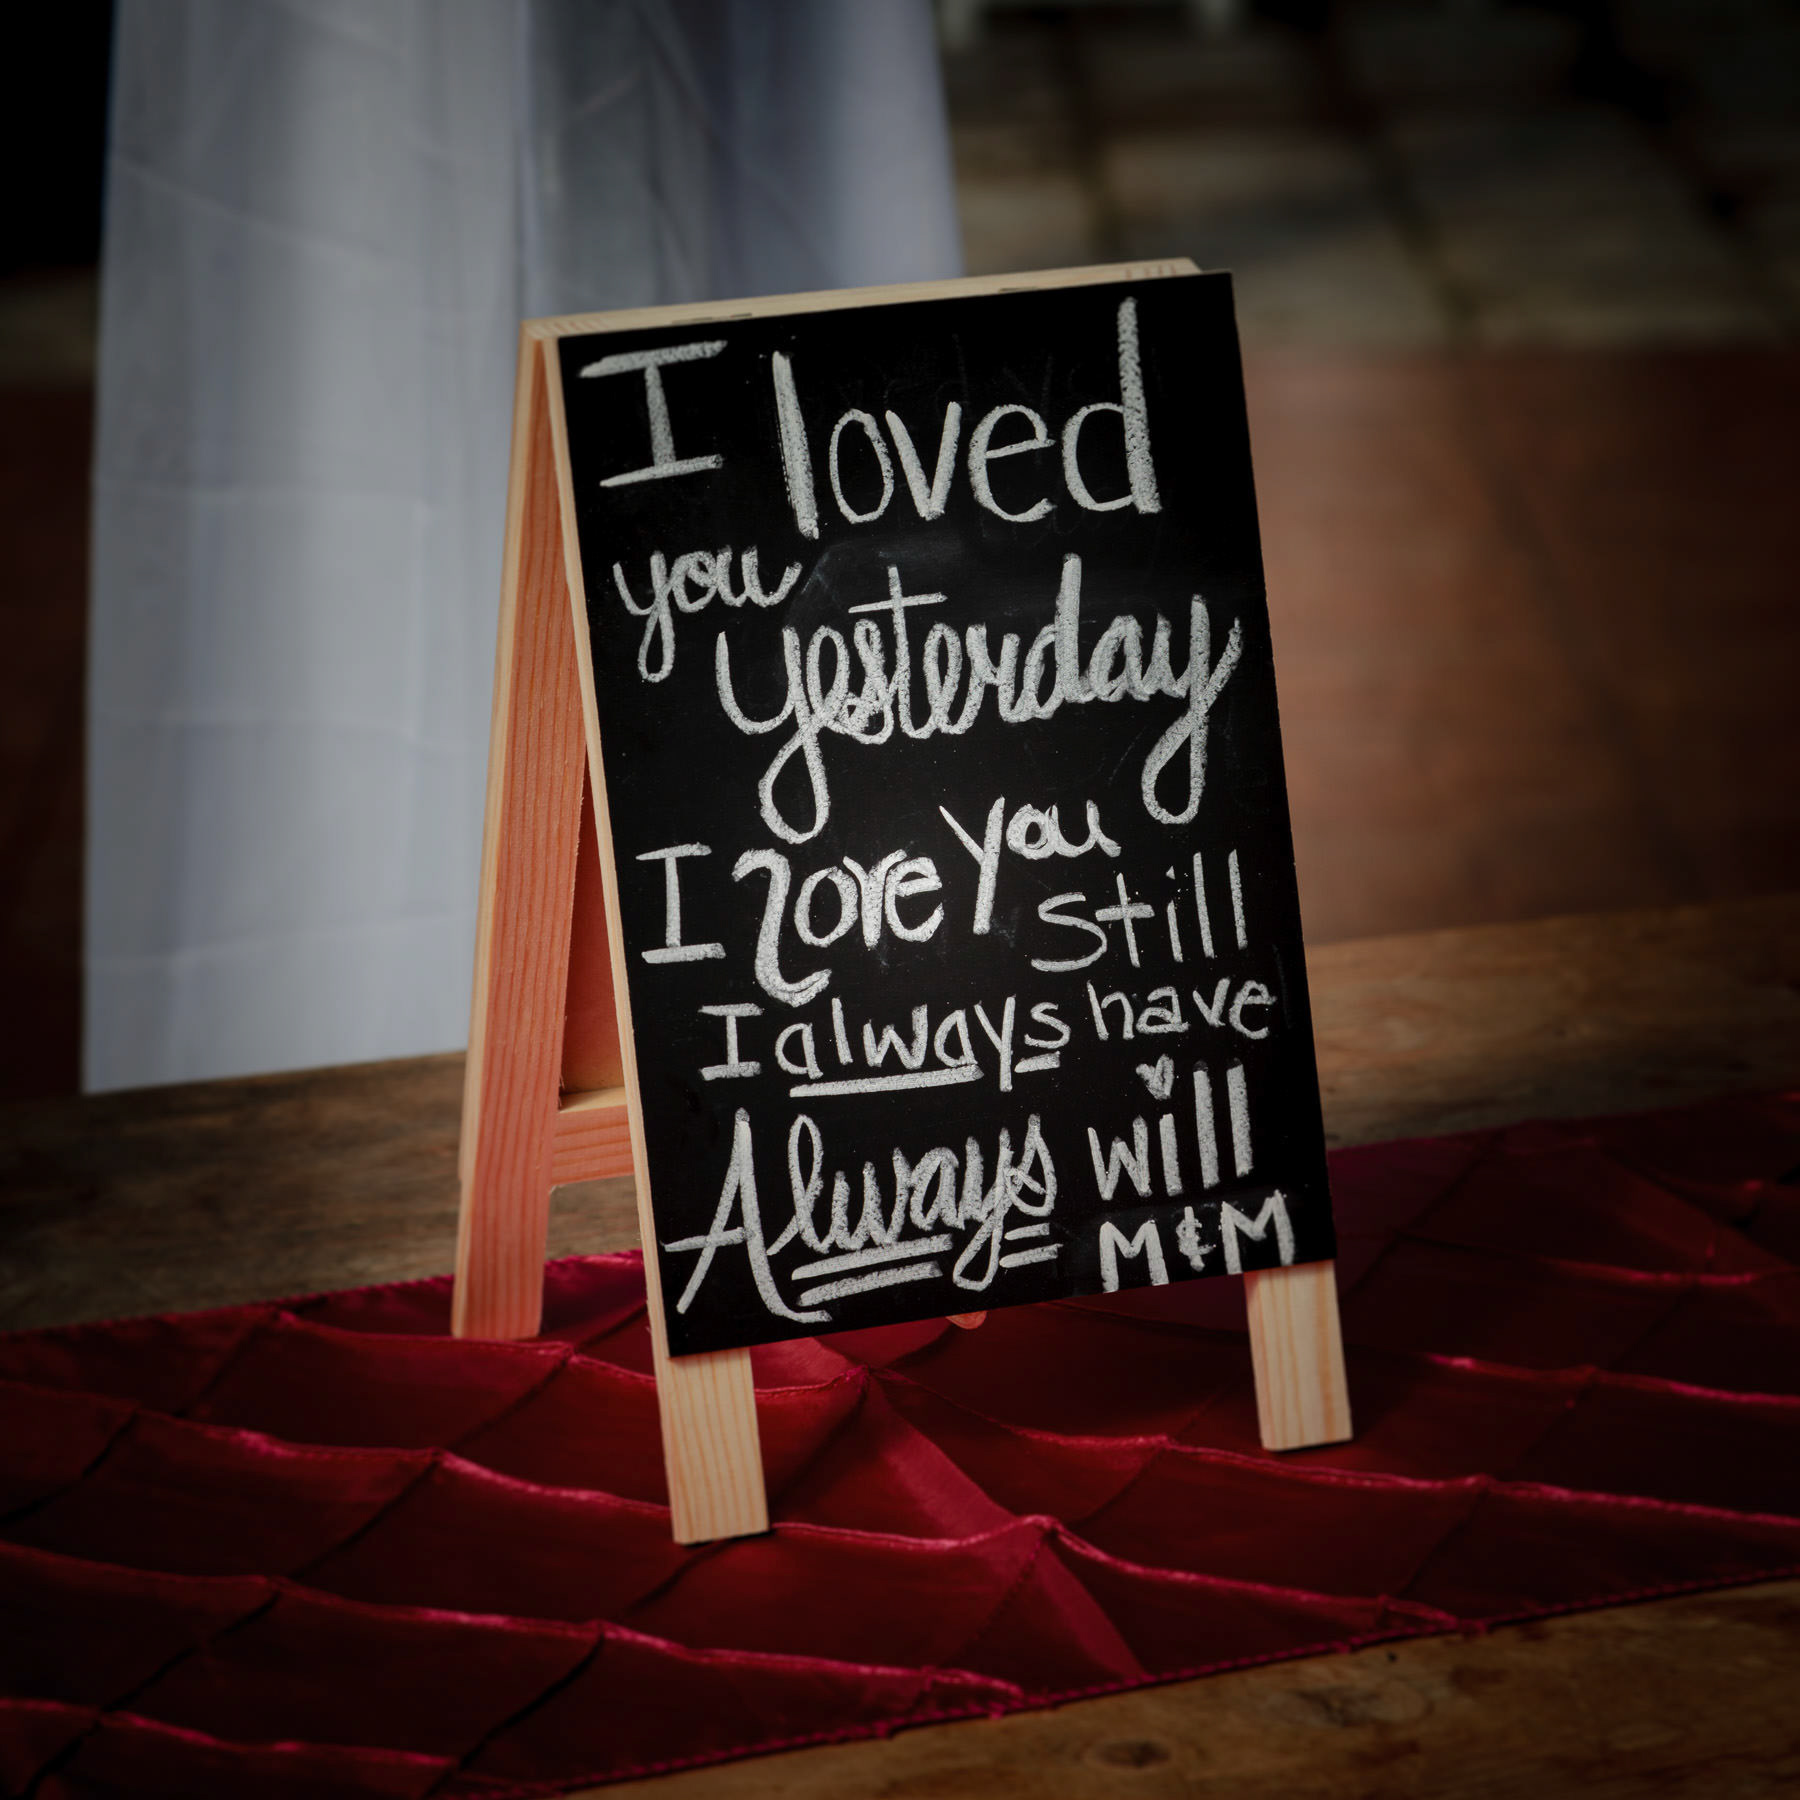 I loved
you
yesterday
I love you
still
I always have
Always will
M & M